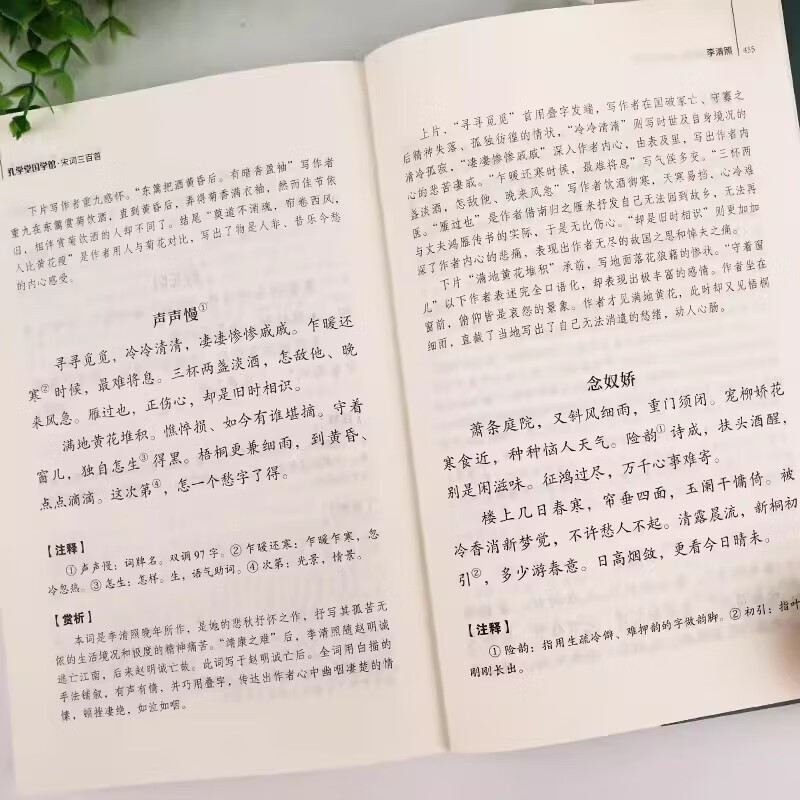 孔学堂国学馆·宋词三百首
下片写作者重九感怀。“东篱把酒黄昏后。有暗香盈袖”写作者
重九在东篱赏菊饮酒，直到黄昏后，弄得菊香满衣袖，然而佳节依
旧，相伴赏菊饮酒的人却不同了。结尾“莫道不消魂，帘卷西风，
人比黄花瘦”是作者用人与菊花对比，写出了物是人非、昔乐今愁
的内心感受。
声声慢①
寻寻觅觅，冷冷清清，凄凄惨惨戚戚。乍暖还
寒②时候，最难将息。三杯两盏淡酒，怎敌他、晚
来风急。雁过也，正伤心，却是旧时相识。
满地黄花堆积。憔悴损、如今有谁堪摘。守着
窗儿，独自怎生③得黑。梧桐更兼细雨，到黄昏、
点点滴滴。这次第④，怎一个愁字了得。
【注释】
①声声慢：词牌名。双调97字。②乍暖还寒：乍暖乍寒，忽
冷忽热。③怎生：怎样。生，语气助词。④次第：光景，情景。
【赏析】
本词是李清照晚年所作，是她的悲秋抒怀之作，抒写其孤苦无
依的生活境况和极度的精神痛苦。“靖康之难”后，李清照随赵明诚
逃亡江南，后来赵明诚亡故。此词写于赵明诚亡后。全词用白描的
手法铺叙，有声有情，并巧用叠字，传达出作者心中曲咽凄楚的情
愫，顿挫凄绝，如泣如咽。
李清照 455
上片，“寻寻觅觅”首用叠字发端，写作者在国破家亡、守寡之
后精神失落、孤独彷徨的情状，“冷冷清清”则写时世及自身境况的
清冷孤寂，“凄凄惨惨戚戚”深入作者内心，由表及里，写出作者内
心的悲苦凄戚。“乍暖还寒时候，最难将息”写气候多变。“三杯两
盏淡酒，怎敌他、晚来风急”写作者饮酒御寒，天寒易挡，心冷难
医。“雁过也”是作者借南归之雁来抒发自己无法回到故乡，无法再
与丈夫鸿雁传书的实际，于是无比伤心。“却是旧时相识”则更加加
深了作者内心的悲痛，表现出作者无尽的故国之思和悼夫之痛。
下片“满地黄花堆积”承前，写地面落花狼藉的惨状。“守着窗
儿”以下作者表述完全口语化，却表现出极丰富的感情。作者坐在
窗前，俯仰皆是哀怨的景象。作者才见满地黄花，此时却又见梧桐
细雨，直截了当地写出了自己无法消遣的愁绪，动人心肠。
念奴娇
萧条庭院，又斜风细雨，重门须闭。宠柳娇花
寒食近，种种恼人天气。险韵①诗成，扶头酒醒，
别是闲滋味。征鸿过尽，万千心事难寄。
楼上几日春寒，帘垂四面，玉阑干慵倚。被
冷香消新梦觉，不许愁人不起。清露晨流，新桐初
引②，多少游春意。日高烟敛，更看今日晴未。
【注释】
①险韵：指用生疏冷僻、难押韵的字做韵脚。②初引：指叶
刚刚长出。